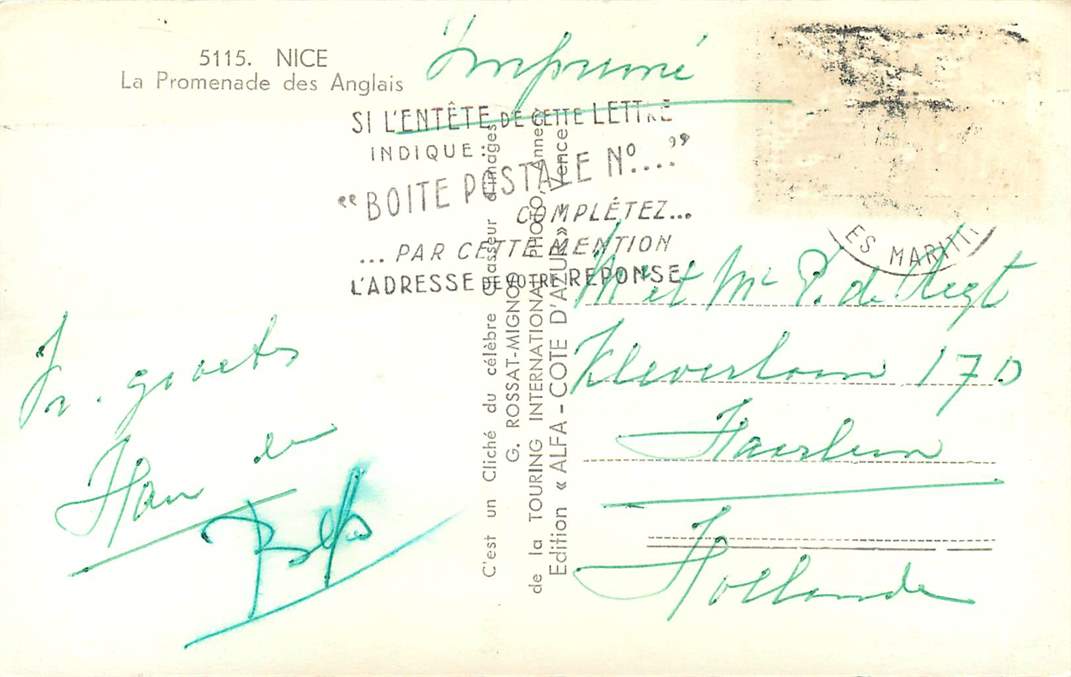 5115. NICE
La Promenade des Anglais
Imprimé
SI L'ENTÊTE DE CETTE LETTRE
INDIQUE:
“BOITE POSTALE Nº...”
COMPLÉTEZ...
...PAR CETTE MENTION
L'ADRESSE DE VOTRE REPONSE
ES MARITI
C'est un Cliché du célèbre Chasseur d'Images
G. ROSSAT-MIGNOD
de la TOURING INTERNATIONAL PHOTO, Anne
Edition « ALFA - COTE D'AZUR » Vence
Mr et Me P. de Regt
Kleverlaan 170
Haarlem
Hollande
Fr. groets
Han en